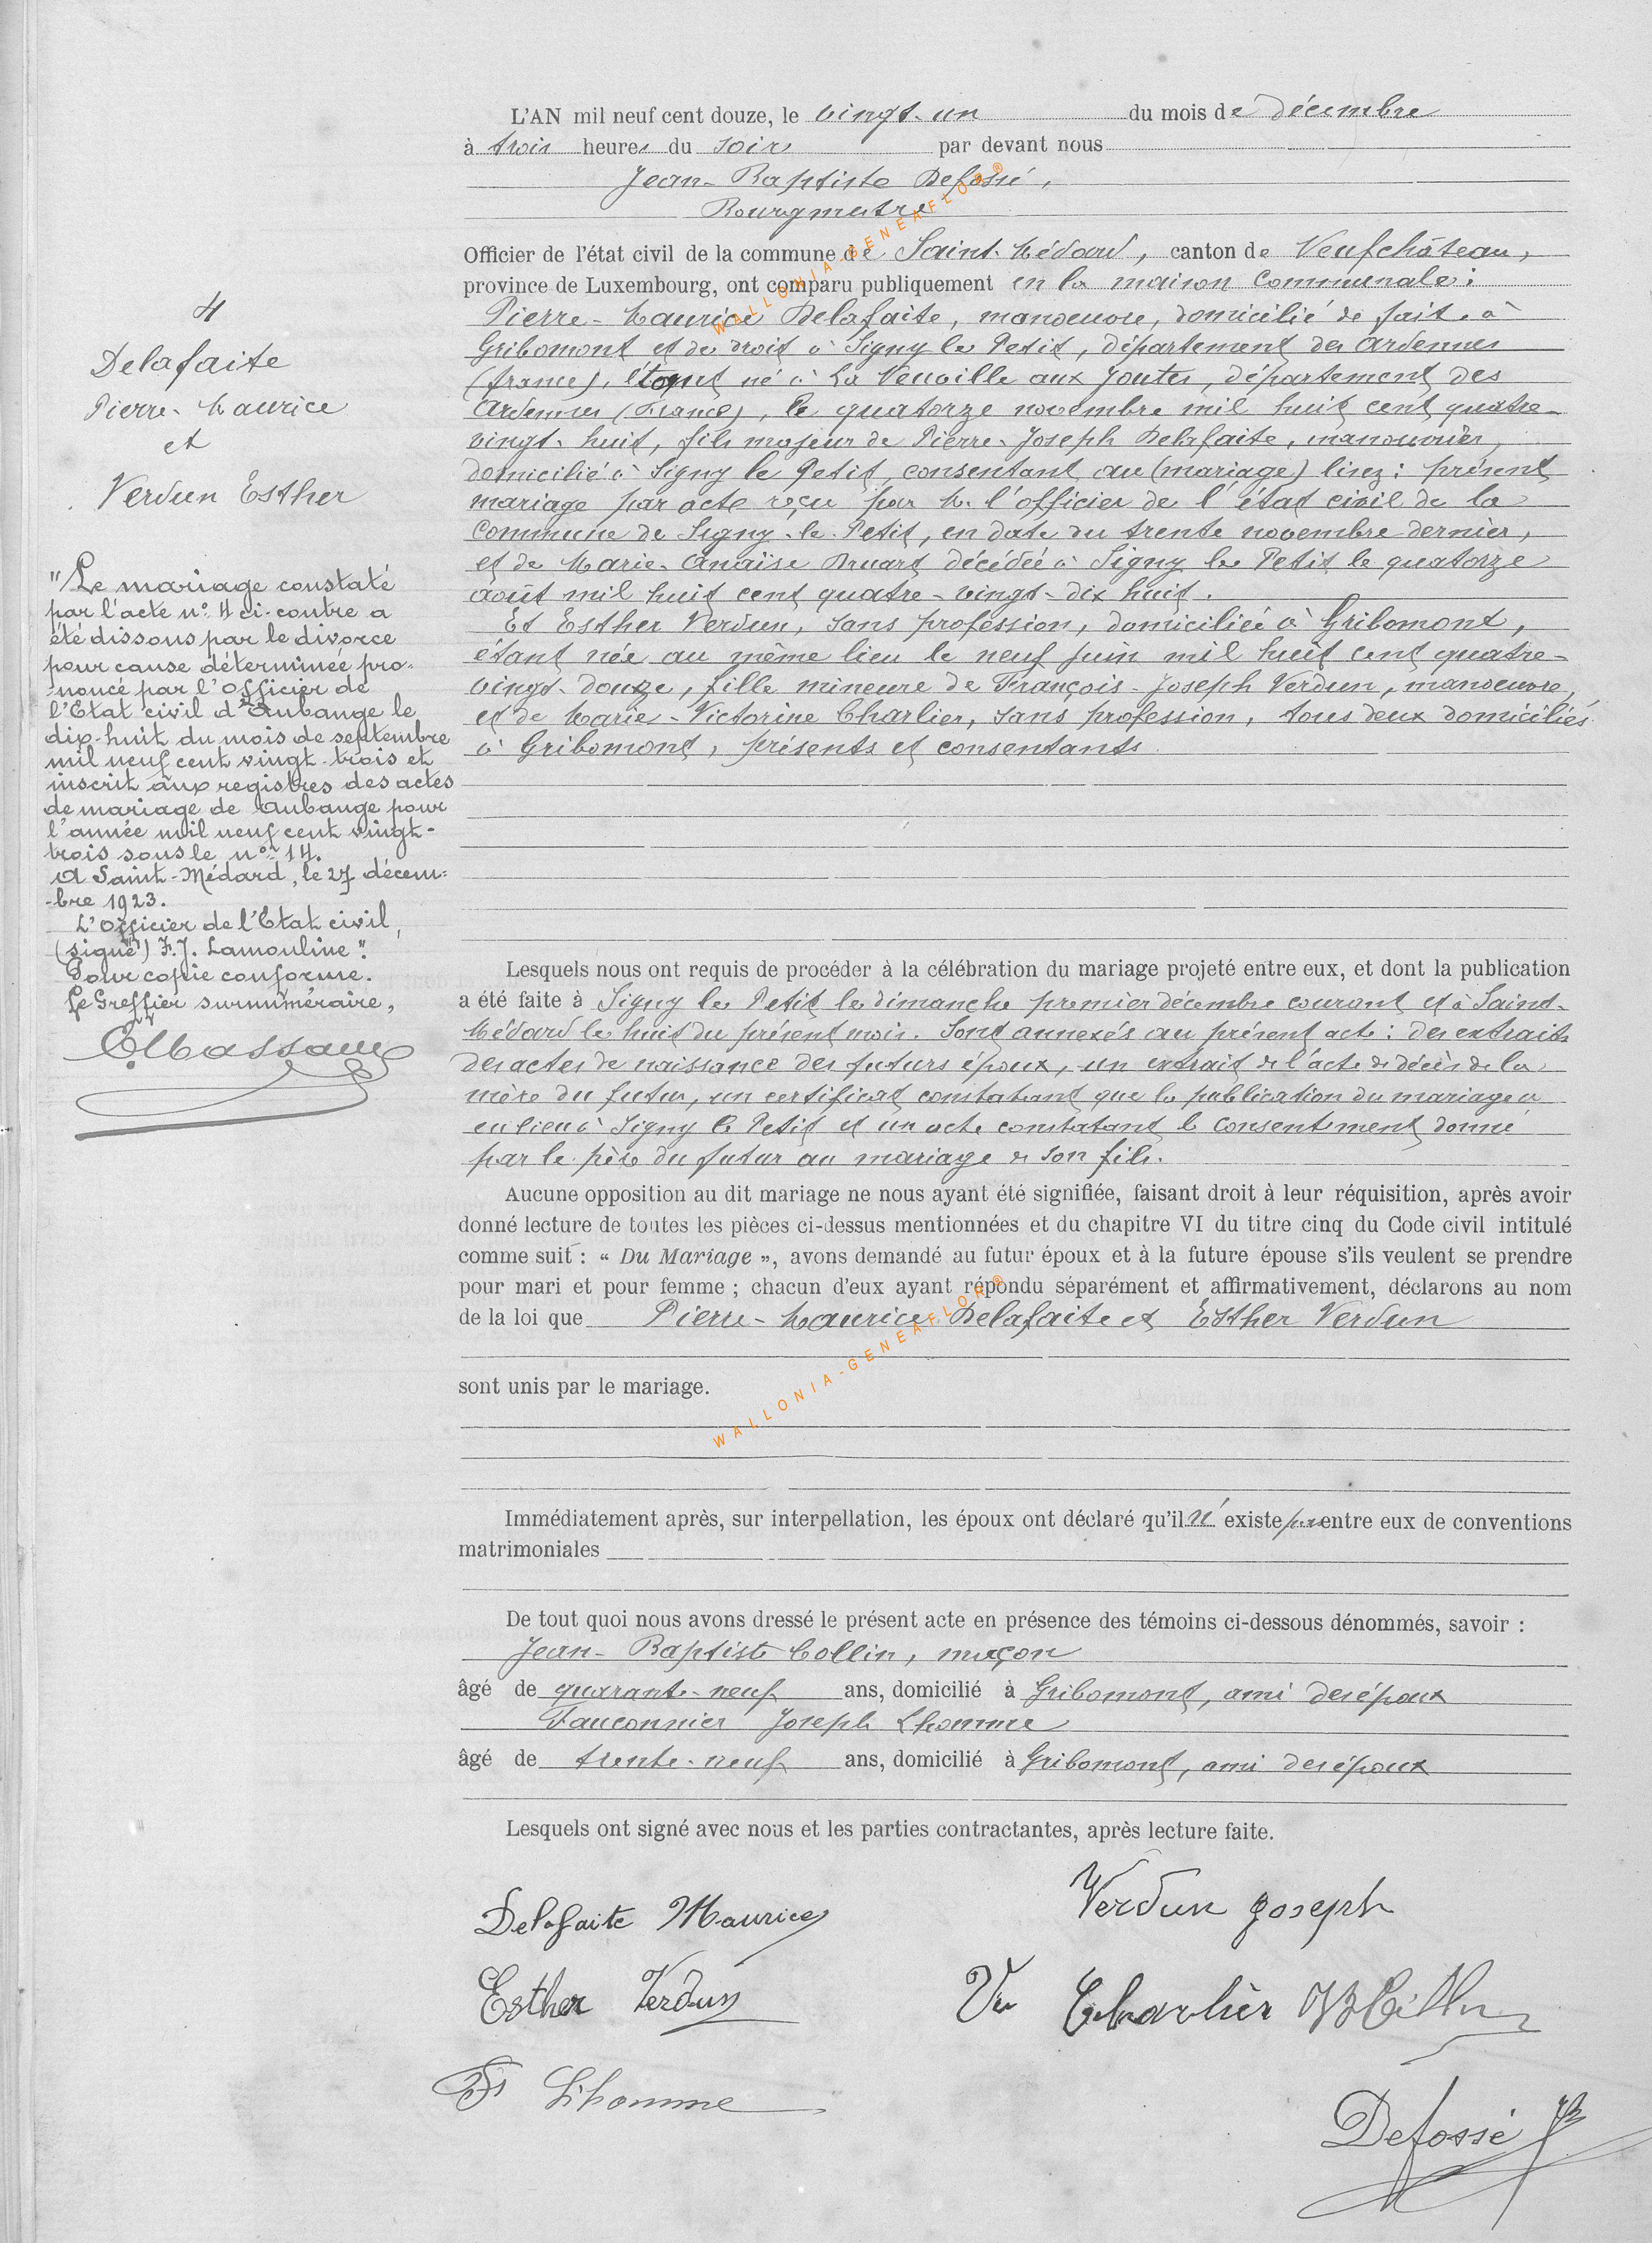 4
Delafaite
Pierre-Maurice
et
Verdun Esther
"Le mariage constaté
par l'acte n° 4 ci-contre a
été dissous par le divorce
pour cause déterminée pro-
noncé par l'Officier de
l'Etat civil d'Aubange le
dix-huit du mois de septembre
mil neuf cent vingt-trois et
inscrit aux registres des actes
de mariage de Aubange pour
l'année mil neuf cent vingt-
trois sous le n° 14.
A Saint-Médard, le 27 décem-
-bre 1923.
L'Officier de l'Etat civil,
(signé) F.J. Lamouline".
Pour copie conforme.
Le Greffier surnuméraire,
L'AN mil neuf cent douze, le vingt-un du mois de décembre
à trois heures du soir par devant nous
Jean-Baptiste Defossé,
Bourgmestre
Officier de l'état civil de la commune de Saint-Médard, canton de Neufchâteau,
province de Luxembourg, ont comparu publiquement en la maison communale:
Pierre-Maurice Delafaite, manoeuvre, domicilié de fait à
Gribomont et de droit à Signy le Petit, département des Ardennes
(france), étant né à La Neuville aux Joutes, département des
Ardennes (France), le quatorze novembre mil huit cent quatre-
vingt-huit, fils majeur de Pierre-Joseph Delafaite, manouvrier,
domicilié à Signy le Petit, consentant au (mariage) lisez: présent
mariage par acte reçu par M. l'officier de l'état civil de la
commune de Signy-le-Petit, en date du trente novembre dernier,
et de Marie-Anaïse Druart décédée à Signy le Petit le quatorze
août mil huit cent quatre-vingt-dix huit.
Et Esther Verdun, sans profession, domiciliée à Gribomont,
étant née au même lieu le neuf juin mil huit cent quatre-
vingt-douze, fille mineure de François-Joseph Verdun, manoeuvre,
et de Marie-Victorine Charlier, sans profession, tous deux domiciliés
à Gribomont, présents et consentants.
Lesquels nous ont requis de procéder à la célébration du mariage projeté entre eux, et dont la publication
a été faite à Signy le Petit le dimanche premier décembre courant et à Saint-
Médard le huit du présent mois. Sont annexés au présent acte: des extraits
des actes de naissance des futurs époux, un extrait de l'acte de décès de la
mère du futur, un certificat constatant que la publication du mariage a
eu lieu à Signy le Petit et un acte constatant le consentement donné
par le père du futur au mariage de son fils.
Aucune opposition au dit mariage ne nous ayant été signifiée, faisant droit à leur réquisition, après avoir
donné lecture de toutes les pièces ci-dessus mentionnées et du chapitre VI du titre cinq du Code civil intitulé
comme suit : « Du Mariage », avons demandé au futur époux et à la future épouse s'ils veulent se prendre
pour mari et pour femme ; chacun d'eux ayant répondu séparément et affirmativement, déclarons au nom
de la loi que Pierre-Maurice Delafaite et Esther Verdun
sont unis par le mariage.
Immédiatement après, sur interpellation, les époux ont déclaré qu'il n'existe pas entre eux de conventions
matrimoniales
De tout quoi nous avons dressé le présent acte en présence des témoins ci-dessous dénommés, savoir :
Jean-Baptiste Collin, maçon
âgé de quarante-neuf ans, domicilié à Gribomont, ami des époux
Fauconnier Joseph Lhomme
âgé de trente-neuf ans, domicilié à Gribomont, ami des époux
Lesquels ont signé avec nous et les parties contractantes, après lecture faite.
Delafaite Maurice
Verdun Joseph
Esther Verdun
Ve Charlier JB Collin
Lhomme
Defossé JB
WALLONIA-GENEAFLOR®
WALLONIA-GENEAFLOR®